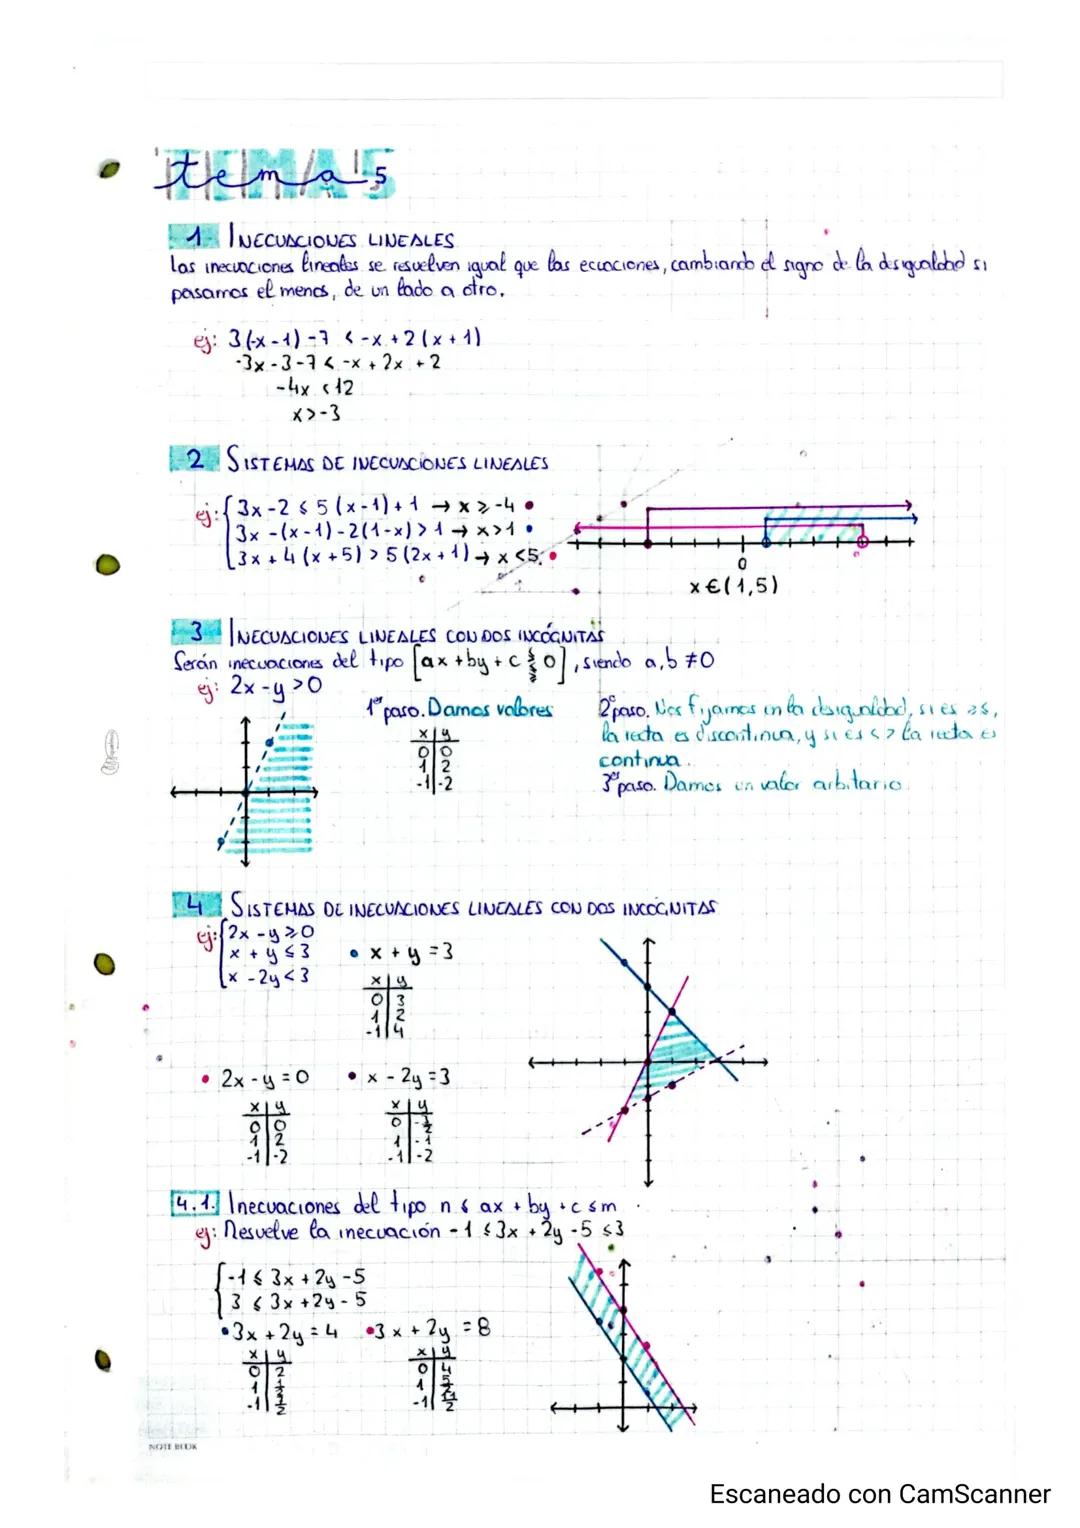 tema 5
1 INECUACIONES LINEALES
Las inecuaciones lineales se resuelven igual que las ecuaciones, cambiando el signo de la desigualdad si
pasamos el menos, de un lado a otro.
ej: 3(-x-1)-7 < -x+2(x+1)
-3x-3-7 < -x+2x+2
-4x < 12
x > -3
2 SISTEMAS DE INECUACIONES LINEALES
ej: { 3x-2 ≤ 5(x-1)+1 → x ≥ -4
3x-(x-1)-2(1-x) > 1 → x > 1
3x+4(x+5) > 5(2x+1) → x < 5
0
x € (1,5)
3 INECUACIONES LINEALES CON DOS INCÓGNITAS
Serán inecuaciones del tipo [ax+by+c ≶ 0], siendo a,b ≠ 0
ej: 2x-y > 0
1er paso. Damos valores
x | y
0 | 0
1 | 2
-1 | -2
2º paso. Nos fijamos en la desigualdad, si es ≥≤,
la recta es discontinua, y si es < > la recta es
continua.
3er paso. Damos un valor arbitario.
4 SISTEMAS DE INECUACIONES LINEALES CON DOS INCÓGNITAS
ej: { 2x-y ≥ 0
x+y ≤ 3
x-2y < 3
• x+y = 3
x | y
0 | 3
1 | 2
-1 | 4
• 2x-y = 0
x | y
0 | 0
1 | 2
-1 | -2
• x-2y = 3
x | y
0 | -3/2
1 | -1
-1 | -2
4.1. Inecuaciones del tipo n ≤ ax+by+c ≤ m
ej: Resuelve la inecuación -1 ≤ 3x+2y-5 ≤ 3
{ -1 ≤ 3x+2y-5
3 ≤ 3x+2y-5
• 3x+2y = 4
x | y
0 | 2
1 | 1/2
-1 | 7/2
• 3x+2y = 8
x | y
0 | 4
1 | 5/2
-1 | 11/2
NOTE BOOK
Escaneado con CamScanner